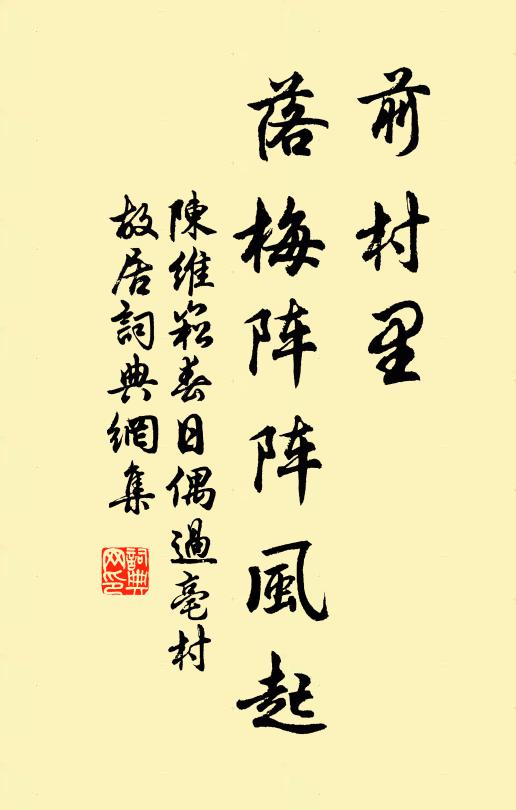 前村里
落梅阵阵風起
陳維崧春日偶過亳村
故居詞典網集
詞典
网印